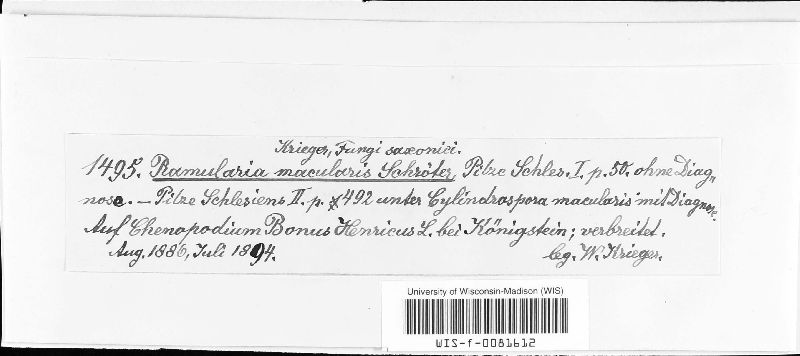 Krieger, Fungi saxonici.
1495. Ramularia macularis Schröter, Pilze Schles. I. p. 50. ohne Diag-
nose. — Pilze Schlesiens II. p. 492 unter Cylindrospora macularis mit Diagnose.
Auf Chenopodium Bonus Henricus L. bei Königstein; verbreitet.
Aug. 1886, Juli 1894. leg. W. Krieger.
University of Wisconsin-Madison (WIS)
WIS-f-0081612